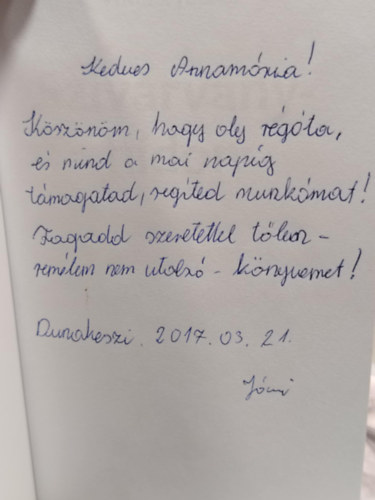 Kedves Annamária!
Köszönöm, hogy oly régóta,
és mind a mai napig
támogatod, segíted munkámat!
Fogadd szeretettel tőlem -
remélem nem utolsó - könyvemet!
Dunakeszi. 2017. 03. 21.